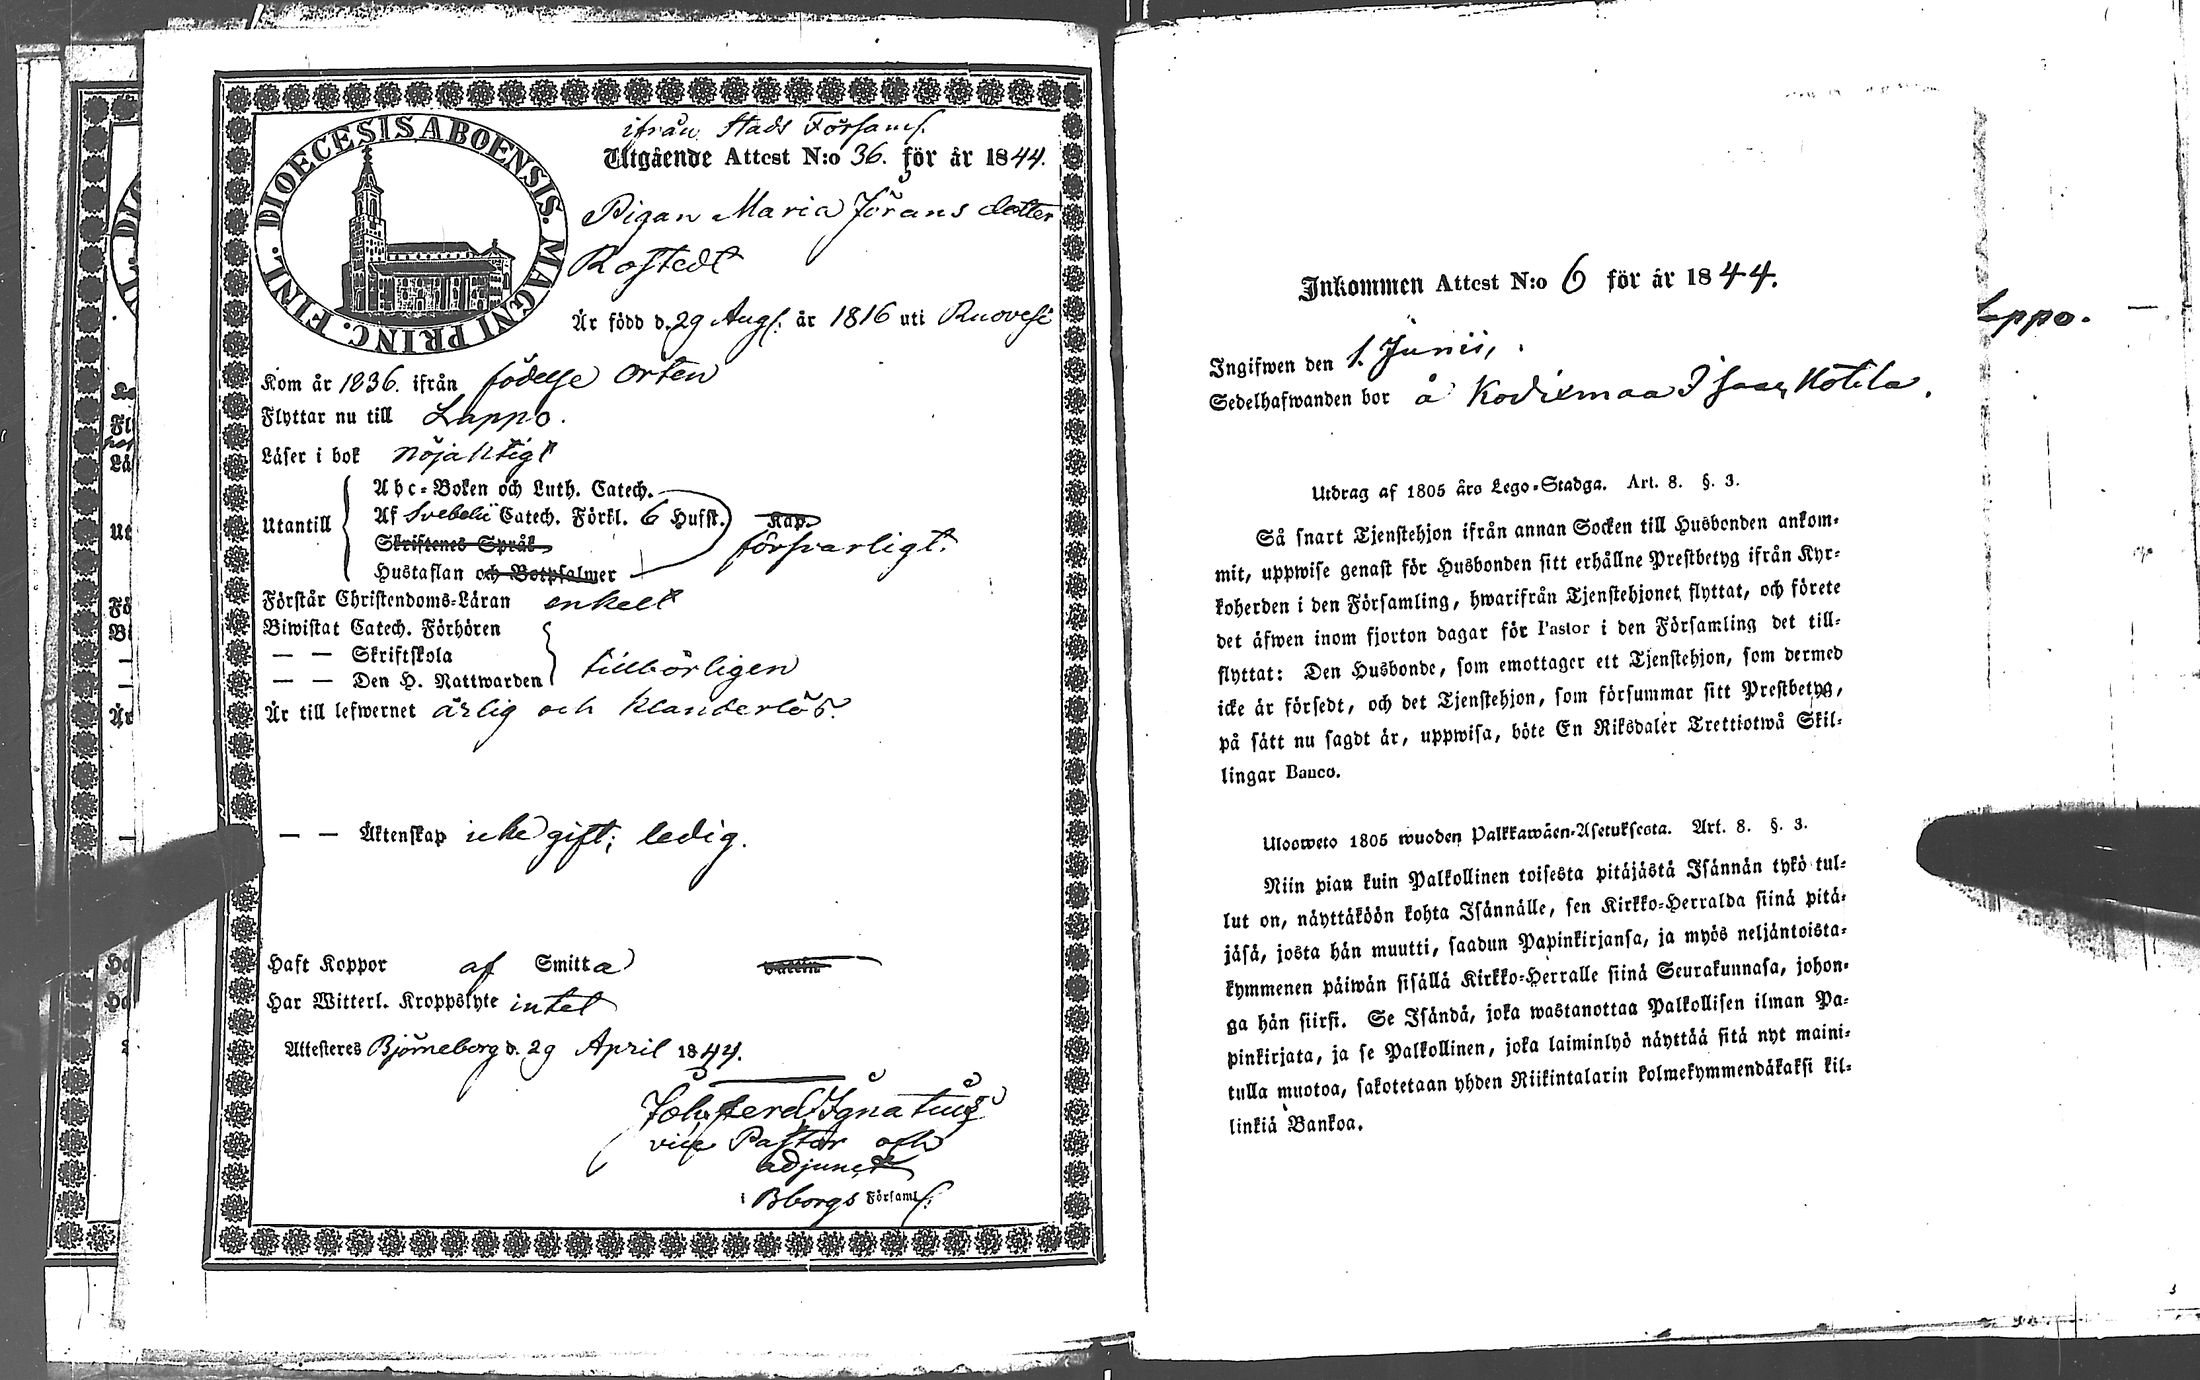 DIOECESIS ABOENSIS. MAGNI PRINC. FINL.
ifrån Stads Församl.
Utgående Attest N:o 36. för år 1844.
Pigan Maria Jörans dotter
Rostedt
Är född d. 29 Aug. år 1816 uti Ruovesi
Kom år 1836. ifrån födelse orten
Flyttar nu till Lappo.
Läser i bok nöjaktigt
Utantill
Abc-Boken och Luth. Catech.
Af Svebelii Catech. Förkl. 6 Hufst. Kap.
Skriftenes Språk försvarligt.
Hustaflan och Botpsalmer
Förstår Christendoms-Läran enkelt
Biwistat Catech. Förhören
— — Skriftskola
— — Den H. Nattwarden tillbörligen
Är till lefwernet ärlig och klanderlös.
— — Äktenskap icke gift; ledig.
Haft Koppor af Smitta
Har Witterl. Kroppslyte intet
Attesteres Björneborg d. 29 April 1844.
Joh. Ferd. Ignatius
vice Pastor och
adjunct
i Bborgs Församl.
Inkommen Attest N:o 6 för år 1844.
Ingifwen den 1. Junii,
Sedelhafwanden bor å Kodixmaa Isaac Kotila.
Utdrag af 1805 års Lego-Stadga. Art. 8. §. 3.
Så snart Tjenstehjon ifrån annan Socken till Husbonden ankom-
mit, uppwise genast för Husbonden sitt erhållne Prestbetyg ifrån Kyr-
koherden i den Församling, hwarifrån Tjenstehjonet flyttat, och förete
det äfwen inom fjorton dagar för Pastor i den Församling det till-
flyttat: Den Husbonde, som emottager ett Tjenstehjon, som dermed
icke är försedt, och det Tjenstehjon, som försummar sitt Prestbetyg,
på sätt nu sagdt är, uppwisa, böte En Riksdaler Trettiotwå Skil-
lingar Banco.
Uloosweto 1805 wuoden Palkkawäen-Asetuksesta. Art. 8. §. 3.
Niin pian kuin Palkollinen toisesta pitäjästä Isännän tykö tul-
lut on, näyttäköön kohta Isännälle, sen Kirkko-Herralda siinä pitä-
jäsä, josta hän muutti, saadun Papinkirjansa, ja myös neljäntoista-
kymmenen päiwän sisällä Kirkko-Herralle siinä Seurakunnasa, johon-
ga hän siirsi. Se Isändä, joka wastanottaa Palkollisen ilman Pa-
pinkirjata, ja se Palkollinen, joka laiminlyö näyttää sitä nyt maini-
tulla muotoa, sakotetaan yhden Riikintalarin kolmekymmendäkaksi kil-
linkiä Bankoa.
ppo.